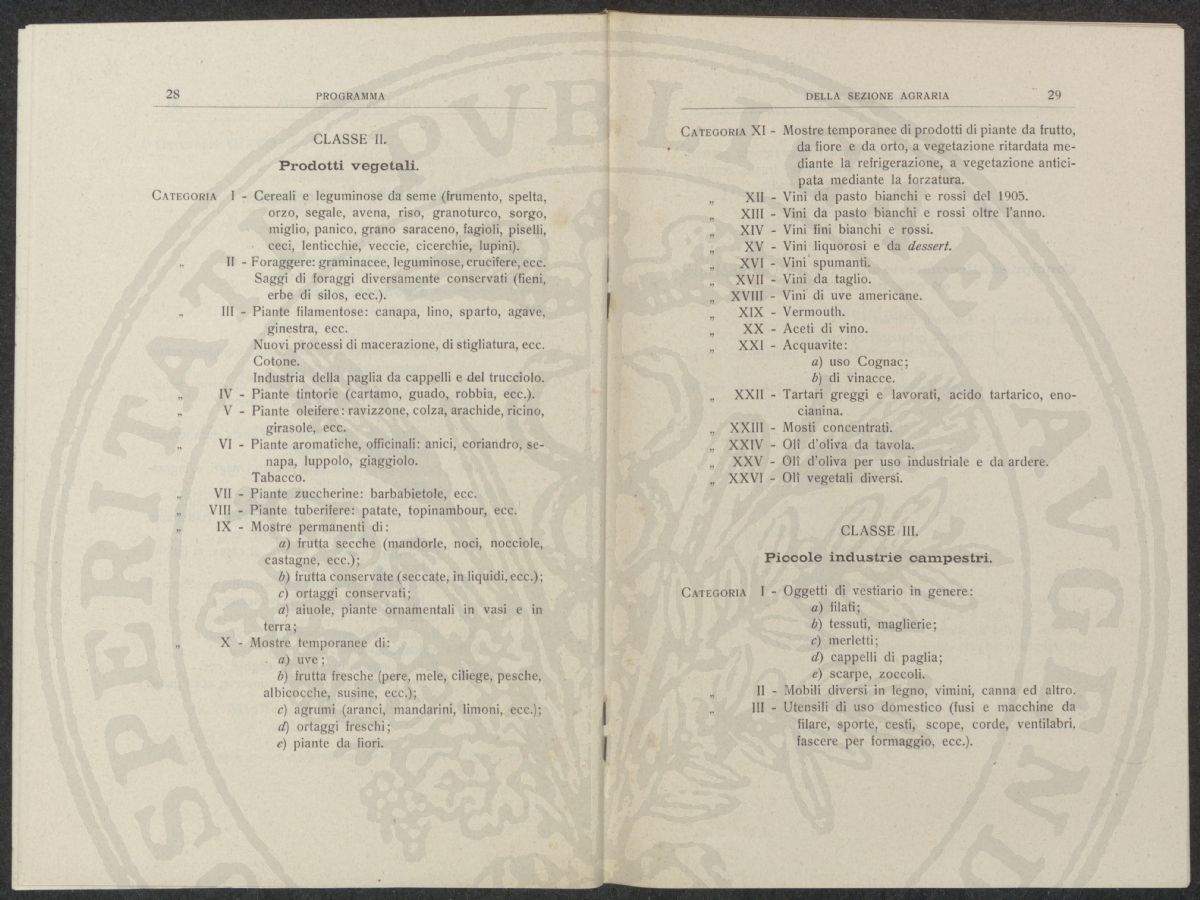 28
PROGRAMMA
CLASSE II.
Prodotti vegetali.
CATEGORIA I - Cereali e leguminose da seme (frumento, spelta,
orzo, segale, avena, riso, granoturco, sorgo,
miglio, panico, grano saraceno, fagioli, piselli,
ceci, lenticchie, veccie, cicerchie, lupini).
„ II - Foraggere: graminacee, leguminose, crucifere, ecc.
Saggi di foraggi diversamente conservati (fieni,
erbe di silos, ecc.).
„ III - Piante filamentose: canapa, lino, sparto, agave,
ginestra, ecc.
Nuovi processi di macerazione, di stigliatura, ecc.
Cotone.
Industria della paglia da cappelli e del trucciolo.
„ IV - Piante tintorie (cartamo, guado, robbia, ecc.).
„ V - Piante oleifere: ravizzone, colza, arachide, ricino,
girasole, ecc.
„ VI - Piante aromatiche, officinali: anici, coriandro, se-
napa, luppolo, giaggiolo.
Tabacco.
„ VII - Piante zuccherine: barbabietole, ecc.
„ VIII - Piante tuberifere: patate, topinambour, ecc.
„ IX - Mostre permanenti di:
a) frutta secche (mandorle, noci, nocciole,
castagne, ecc.);
b) frutta conservate (seccate, in liquidi, ecc.);
c) ortaggi conservati;
d) aiuole, piante ornamentali in vasi e in
terra;
„ X - Mostre temporanee di:
a) uve;
b) frutta fresche (pere, mele, ciliege, pesche,
albicocche, susine, ecc.);
c) agrumi (aranci, mandarini, limoni, ecc.);
d) ortaggi freschi;
e) piante da fiori.
DELLA SEZIONE AGRARIA
29
CATEGORIA XI - Mostre temporanee di prodotti di piante da frutto,
da fiore e da orto, a vegetazione ritardata me-
diante la refrigerazione, a vegetazione antici-
pata mediante la forzatura.
„ XII - Vini da pasto bianchi e rossi del 1905.
„ XIII - Vini da pasto bianchi e rossi oltre l'anno.
„ XIV - Vini fini bianchi e rossi.
„ XV - Vini liquorosi e da dessert.
„ XVI - Vini spumanti.
„ XVII - Vini da taglio.
„ XVIII - Vini di uve americane.
„ XIX - Vermouth.
„ XX - Aceti di vino.
„ XXI - Acquavite:
a) uso Cognac;
b) di vinacce.
„ XXII - Tartari greggi e lavorati, acido tartarico, eno-
cianina.
„ XXIII - Mosti concentrati.
„ XXIV - Olî d'oliva da tavola.
„ XXV - Olî d'oliva per uso industriale e da ardere.
„ XXVI - Olî vegetali diversi.
CLASSE III.
Piccole industrie campestri.
CATEGORIA I - Oggetti di vestiario in genere:
a) filati;
b) tessuti, maglierie;
c) merletti;
d) cappelli di paglia;
e) scarpe, zoccoli.
„ II - Mobili diversi in legno, vimini, canna ed altro.
„ III - Utensili di uso domestico (fusi e macchine da
filare, sporte, cesti, scope, corde, ventilabri,
fascere per formaggio, ecc.).
SPERITATI PVBLICAE AVGENDAE